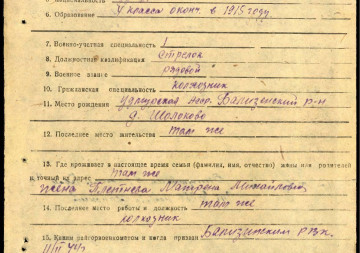 6. Образование V класса оконч. в 1915 году
7. Военно-учетная специальность 1
8. Должностная квалификация стрелок
9. Военное звание рядовой
10. Гражданская специальность колхозник
11. Место рождения Удмуртской Балезинский р-н
д.
12. Последнее место жительства там же
13. Где проживает в настоящее время семья (фамилия, имя, отчество) жены или родителей
и точный их адрес там же
жена Плетнева Матрена Михайловна
14. Последнее место работы и должность там же
колхозник
15. Каким райгорвоенкоматом и когда призван Балезинским рвк.